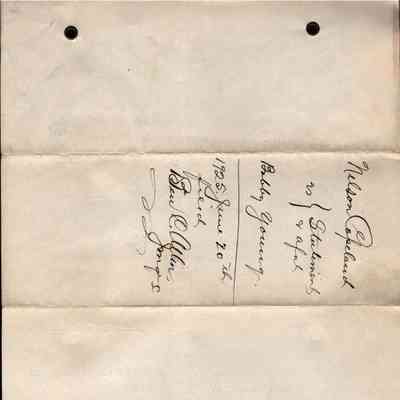 Nelson Copeland
vs } Statement
& afdt
Bobby Young.
1925 June 20th
filed
Ben C. Allin